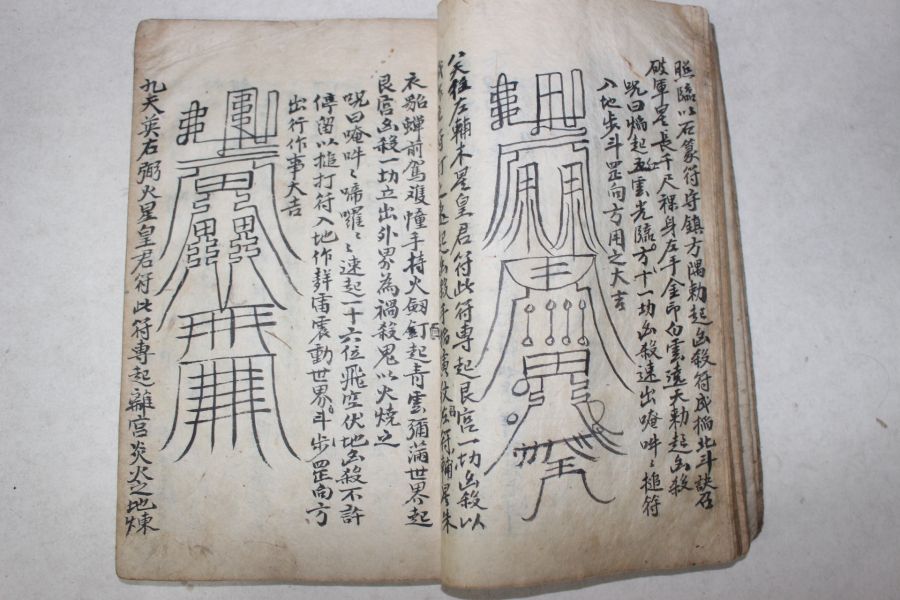 照臨以石篆符守鎮方隅勅起凶殺符成搯北斗訣召
破軍星長千尺稞身左手金印白雲遶天勅起凶殺
呪曰焰起五雲光臨方十一切凶殺速出唵吽〻槌符
入地步斗罡向方用之大吉
天任左輔木星皇君符此符專起艮宫一切凶殺以
衣貂蟬前駕雞憧手持火劔釘起青雲彌滿世界起
艮宫凶殺一切立出外界為禍殺鬼以火燒之
呪曰唵吽〻啼囉〻〻速起一十六位飛空伏地凶殺不許
停留以槌打符入地作群雷震動世界斗步罡向方
出行作事大吉
九天英右弼火星皇君符此符專起離宫炎火之地煉